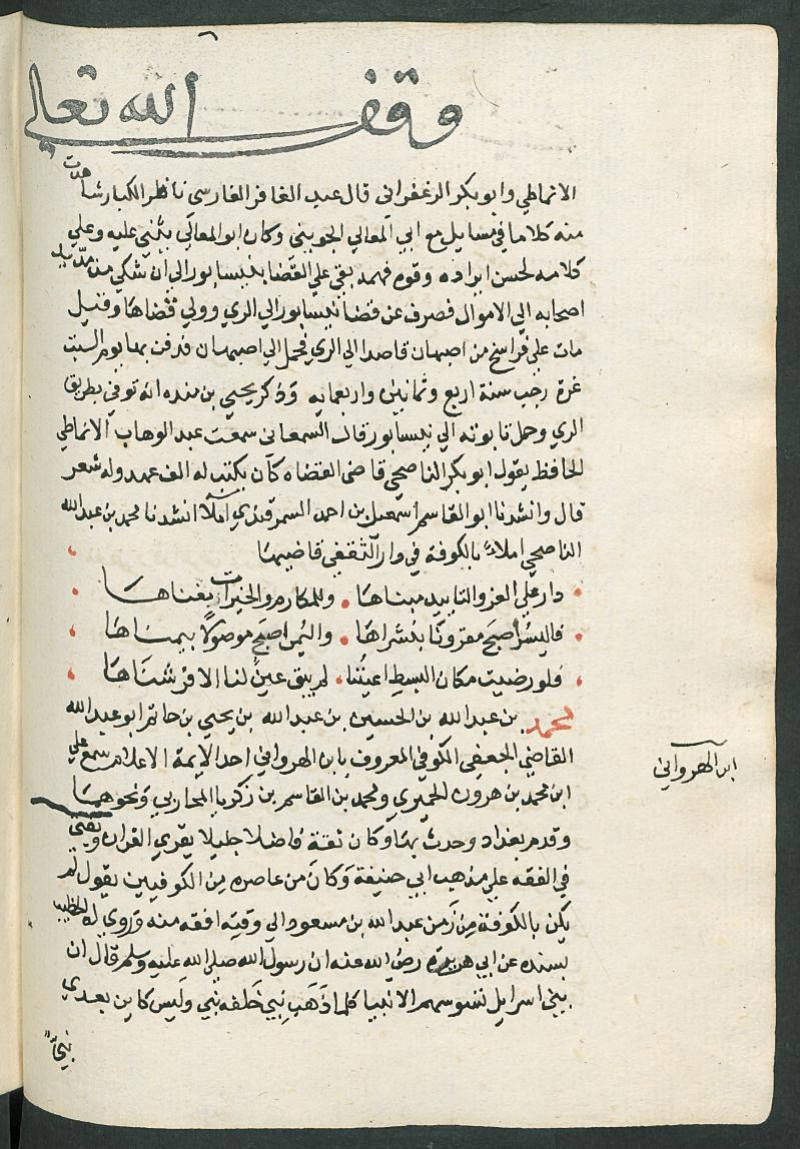 وقف الله تعالي
الانماطي وابو بكر الزغفراني قال عبد الغافر الفارسي ناظر الكبار شاهدت
منه كلاما في مسايل مع ابي المعالي الجويني وكان ابو المعالي يثني عليه وعلي
كلامه لحسن ايراده وقوة فهمه بقي علي القضا بنيسابور الي ان شكي من مد يد
اصحابه الي الاموال فصرف عن قضا نيسابور الي الري وولي قضاها وقيل
مات علي فراسخ من اصبهان قاصدا الي الري فحمل الي اصبهان فدفن بها يوم السبت
غرة رجب سنة اربع وثمانين واربعمايه وذكر يحيي بن منده انه توفي بطريق
الري وحمل تابوته الي نيسابور قال السمعاني سمعت عبد الوهاب الانماطي
الحافظ يقول ابو بكر الناصحي قاضي القضاه كان يكتب له الف عهد وله شعر
قال وانشدنا ابو القاسم اسمعيل بن احمد السمرقندي املا انشدنا محمد بن عبد الله
الناصحي املاء بالكوفة في دار الثقفي قاضيها
دار علي العز والتاييد مبناها وللمكارم والخيرات مغناها
فاليسر اصبح مقرونا بيسراها واليمن اصبح موصولا بيمناها
فلو رضيت مكان البسط اعيننا لم يبق عين لنا الا فرشناها
محمد بن عبد الله بن الحسين بن عبد الله بن يحيي بن حاتم ابو عبد الله
القاضي الجعفي الكوفي المعروف بابن الهرواني احد الايمة الاعلام سمع علي
ابن محمد بن هرون الحميري ومحمد بن القاسم بن زكريا المحاربي ونحوهما
وقدم بغداد وحدث بها وكان ثقة فاضلا جليلا يقري القران ويفتي
في الفقه علي مذهب ابي حنيفة وكان من عاصره من الكوفيين يقول لم
يكن بالكوفة من زمن عبد الله بن مسعود الي وقته افقه منه وروي له الخطيب
بسنده عن ابي هريرة رضي الله عنه ان رسول الله صلي الله عليه وسلم قال ان
بني اسرايل تسوسهم الانبيا كلما ذهب نبي خلفه نبي وليس كاين بعدي
نبي
ابن الهرواني